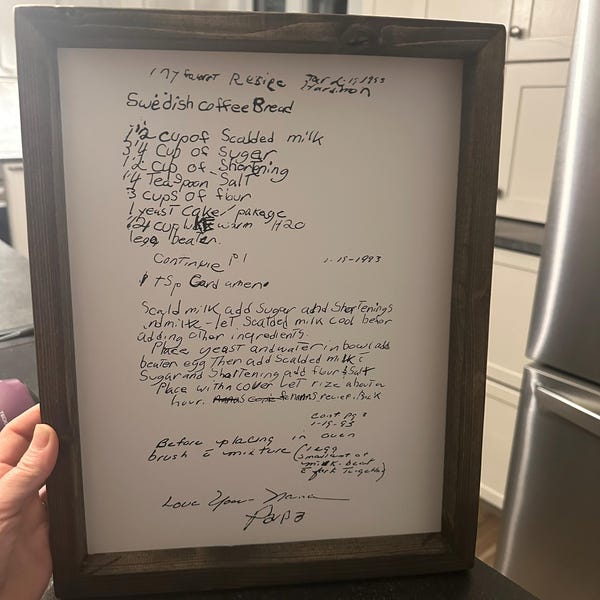 my favort Resipe Mar 2-15-1993
Swedish coffee Bread
1'2 cup of Scalded milk
3'4 Cup of Suger
1'2 cup of Shortning
1'4 Teaspoon Salt
3 cups of flour
1 yeast Cake/pakage
1'4 cup LUKE warm H2O
1egg beaten.
Continue P1 1-15-1993
1 tsp Cardamen.
Scald milk add Sugar and Shortenings
let Scalded milk cool befor
adding other ingredients.
Place yeast and water in bowl add
beaten egg then add Scalded milk c̄
Sugar and Shortening add flour & Salt
Place with cover Let rize about a
hour.
Cont pg 2
1-15-93
Before placing in oven
brush c̄ mixture (1 egg
Small amt of
milk-beat
c̄ fork together)
Love Your Nana
Papa